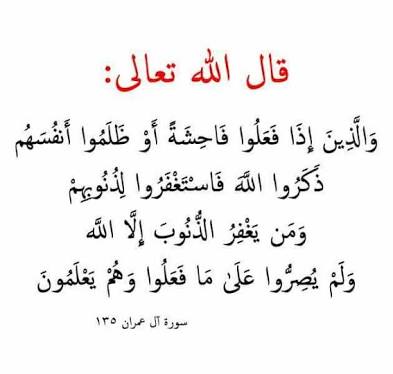 قال الله تعالى:
وَالَّذِينَ إِذَا فَعَلُوا فَاحِشَةً أَوْ ظَلَمُوا أَنفُسَهُم
ذَكَرُوا اللَّهَ فَاسْتَغْفَرُوا لِذُنُوبِهِمْ
وَمَن يَغْفِرُ الذُّنُوبَ إِلَّا اللَّه
وَلَمْ يُصِرُّوا عَلَىٰ مَا فَعَلُوا وَهُمْ يَعْلَمُونَ
سورة آل عمران ١٣٥